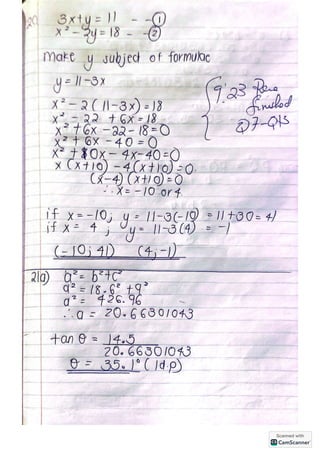 20. 3x+y = 11 - - ①
x² - 2y = 18 - - ②
make y subject of formulae
y = 11-3x
x² - 2(11-3x) = 18
x² - 22 + 6x = 18
x² + 6x - 22 - 18 = 0
x² + 6x - 40 = 0
x² + 10x - 4x - 40 = 0
x (x+10) - 4(x+10) = 0
(x-4) (x+10) = 0
∴ x = -10 or 4
9:23
finished
Q7-
if x = -10; y = 11-3(-10) = 11+30 = 41
if x = 4 ; y = 11-3(4) = -1
(-10; 41) (4; -1)
21a) a² = b²+c²
a² = 18.6² + 9²
a² = 426.96
∴ a = 20.66301043
tan θ = 14.5
20.66301043
θ = 35.1° (1d.p)
Scanned with
CS CamScanner